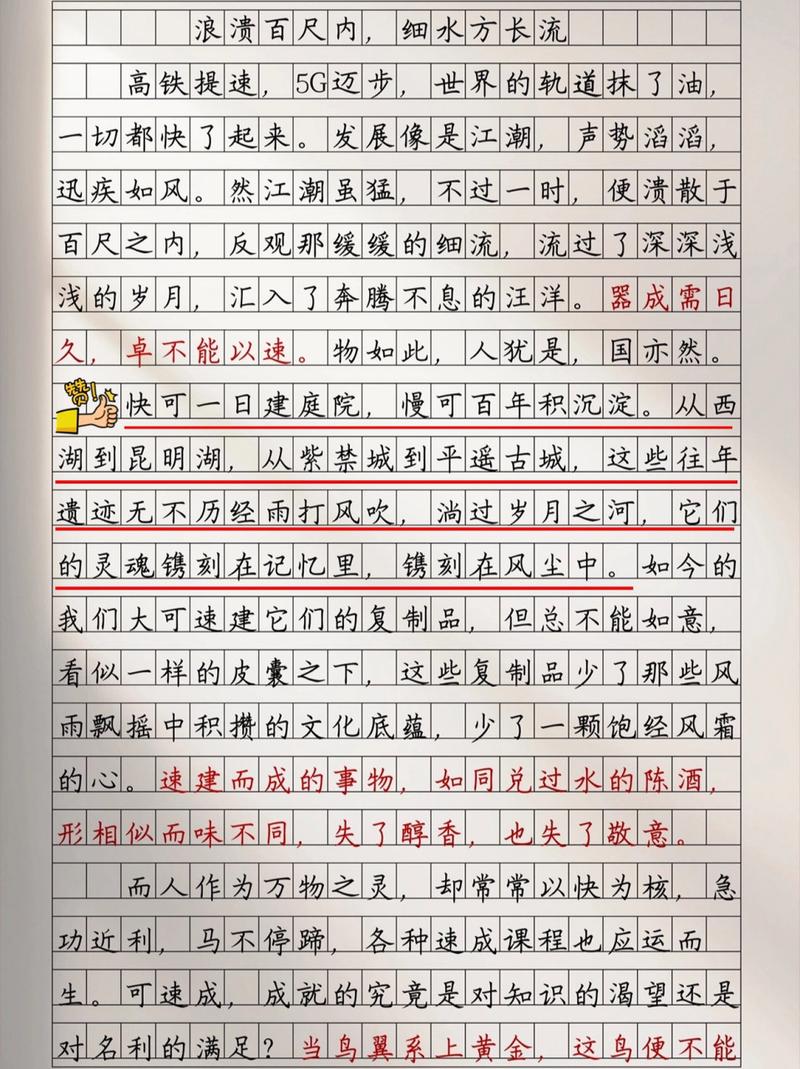 浪溃百尺内，细水方长流
高铁提速，5G迈步，世界的轨道抹了油，
一切都快了起来。发展像是江潮，声势滔滔，
迅疾如风。然江潮虽猛，不过一时，便溃散于
百尺之内，反观那缓缓的细流，流过了深深浅
浅的岁月，汇入了奔腾不息的汪洋。器成需日
久，卓不能以速。物如此，人犹是，国亦然。
赞！
快可一日建庭院，慢可百年积沉淀。从西
湖到昆明湖，从紫禁城到平遥古城，这些往年
遗迹无不历经雨打风吹，淌过岁月之河，它们
的灵魂镌刻在记忆里，镌刻在风尘中。如今的
我们大可速建它们的复制品，但总不能如意，
看似一样的皮囊之下，这些复制品少了那些风
雨飘摇中积攒的文化底蕴，少了一颗饱经风霜
的心。速建而成的事物，如同兑过水的陈酒，
形相似而味不同，失了醇香，也失了敬意。
而人作为万物之灵，却常常以快为核，急
功近利，马不停蹄，各种速成课程也应运而
生。可速成，成就的究竟是对知识的渴望还是
对名利的满足？当鸟翼系上黄金，这鸟便不能